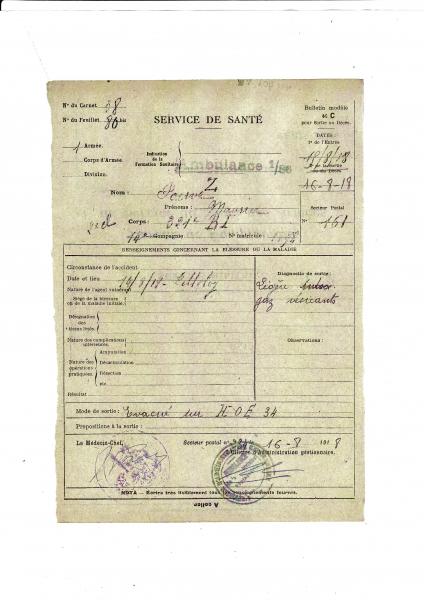 N° du Carnet 38
N° du Feuillet 86 bis
SERVICE DE SANTÉ
Bulletin modèle
46 C
pour Sortie ou Décès.
DATES :
1° de l'Entrée
1 Armée.
Corps d'Armée
Division.
Indication
de la
Formation Sanitaire
Ambulance 1/86
2° de la Sortie
ou du Décès
16-8-18
Nom :
Prénoms : Maurice
Corps : 321e RI
14e Compagnie
N° matricule :
Secteur Postal
N° 161
RENSEIGNEMENTS CONCERNANT LA BLESSURE OU LA MALADIE
Circonstance de l'accident.
Date et lieu
Nature de l'agent vulnérant
Siège de la blessure
ou de la maladie initiale.
Désignation
des
tissus lésés.
Nature des complications
intérieures.
Nature des
opérations
pratiquées.
Amputation
Désarticulation
Résection
etc.
Résultat
Diagnostic de sortie :
Légère
gaz vésicants
Observations :
Mode de sortie : Evacué sur HOE 34
Propositions à la sortie :
Le Médecin-Chef,
Secteur postal n° 16-8 1918
L'Officier d'Administration gestionnaire.
NOTA — Écrire très lisiblement tous les renseignements fournis.
A coller